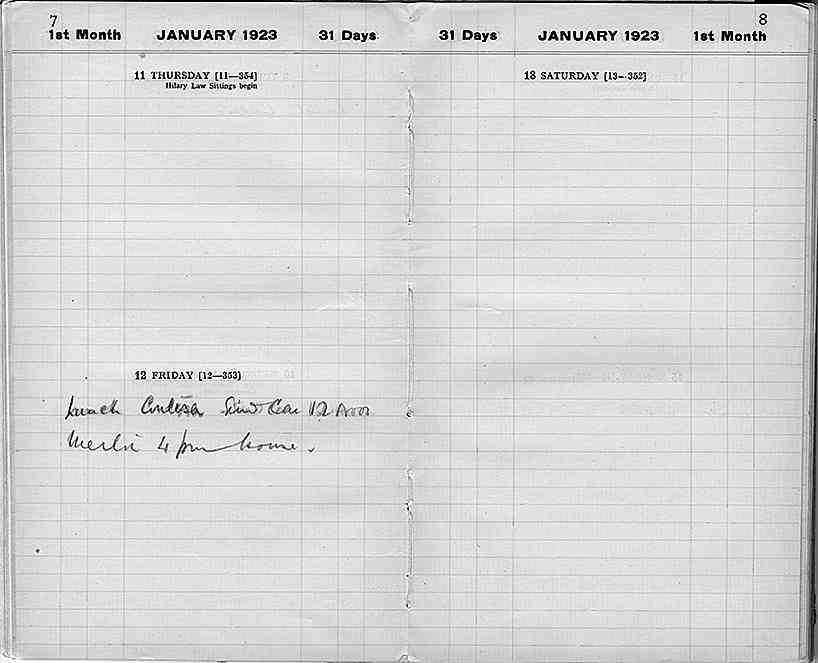 7
1st Month JANUARY 1923 31 Days
11 THURSDAY [11—354]
Hilary Law Sittings begin
12 FRIDAY [12—353]
Lunch Contessa Send Car 12 noon
4 pm home.
8
31 Days JANUARY 1923 1st Month
13 SATURDAY [13—352]